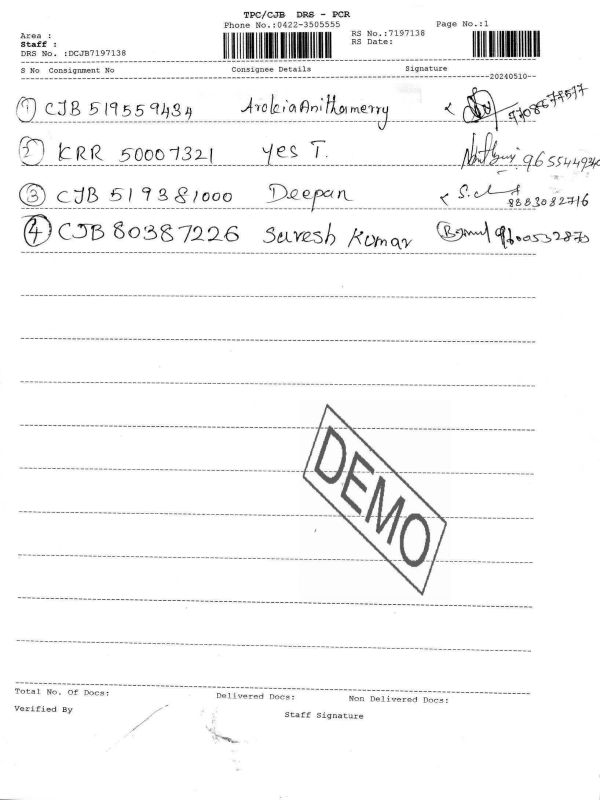 TPC/CJB DRS - PCR
Phone No.:0422-3505555 Page No.:1
Area : RS No.:7197138
Staff : RS Date:
DRS No. :DCJB7197138
S No Consignment No Consignee Details Signature
20240510
1 CJB 519559434 ArokiaAnithamerry 7708677577
2 KRR 50007321 Yes T. 9655449340
3 CJB 519381000 Deepan 8883082716
4 CJB 80387226 Suresh Kumar 9600532873
DEMO
Total No. Of Docs: Delivered Docs: Non Delivered Docs:
Verified By Staff Signature